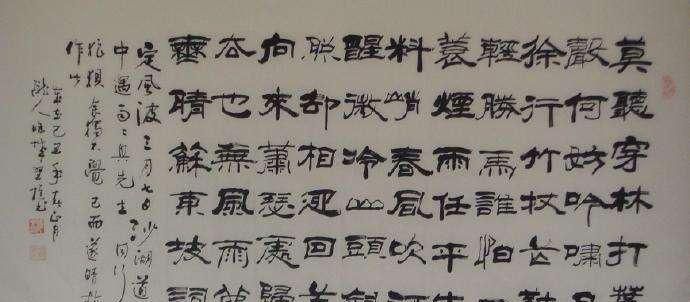 莫聽穿林打葉
聲何妨吟嘯且
徐行竹杖芒鞋
輕勝馬誰怕
蓑煙雨任平生
料峭春風吹酒
醒微冷山頭斜
照却相迎回首
向來蕭瑟處歸
去也無風雨
無晴蘇東坡詞
定風波三月七日沙湖道
中遇雨雨具先去同行
狼狽余獨不覺已而遂晴故
作此
己丑年春正月